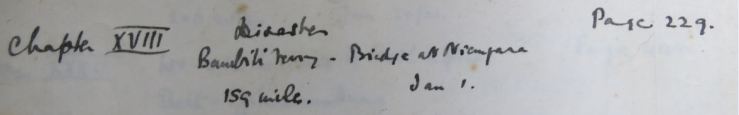 Disaster
Page 229.
Chapter XVIII
Bambili Ferry - Bridge at Niangara
159 miles.
Jan 1.